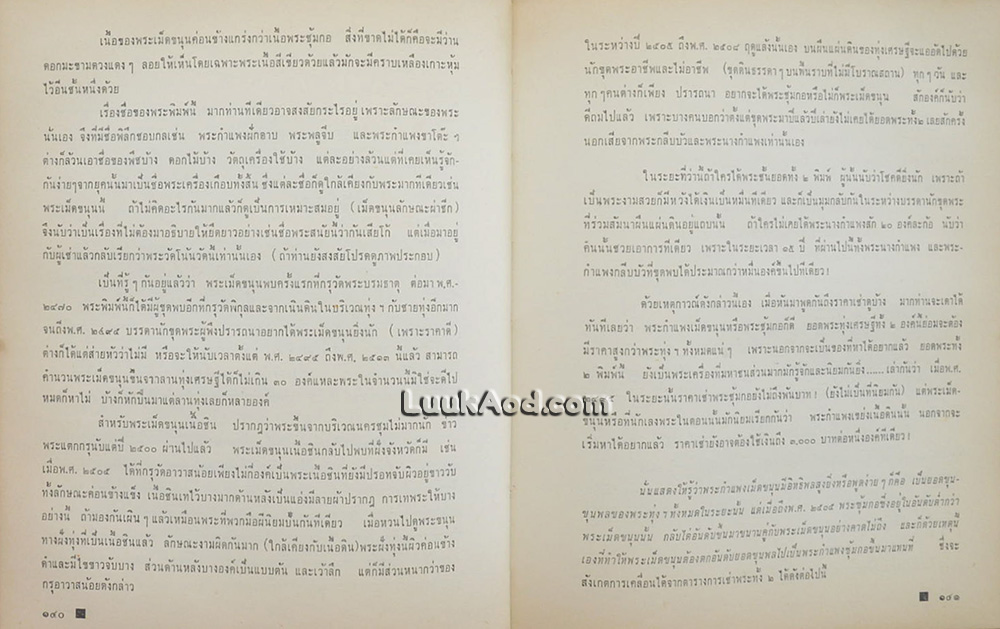 เนื้อของพระเม็ดขนุนค่อนข้างแกร่งกว่าเนื้อพระซุ้มกอ สิ่งที่ขาดไม่ได้ก็คือจะมีว่าน
ดอกมะขามดวงแดง ๆ ลอยให้เห็นโดยเฉพาะพระเนื้อสีเขียวด้วยแล้วมักจะมีคราบเหลืองเกาะหุ้ม
ไว้อีกชั้นหนึ่งด้วย
เรื่องชื่อของพระพิมพ์นี้ มากท่านทีเดียวอาจสงสัยกระไรอยู่ เพราะลักษณะของพระ
นั้นเอง จึงที่มีชื่อพิลึกชอบกลเช่น พระกำแพงฝักดาบ พระพลูจีบ และพระกำแพงขาโต๊ะ ฯ
ต่างก็ล้วนเอาชื่อของพืชบ้าง ดอกไม้บ้าง วัตถุเครื่องใช้บ้าง แต่ละอย่างล้วนแต่ที่เคยเห็นรู้จัก-
กันง่ายๆจากยุคนั้นมาเป็นชื่อพระเครื่องเกือบทั้งสิ้น ซึ่งแต่ละชื่อก็ดูใกล้เคียงกับพระมากทีเดียวเช่น
พระเม็ดขนุนนี้ ถ้าไม่คิดอะไรกันมากแล้วก็ดูเป็นการเหมาะสมอยู่ (เม็ดขนุนลักษณะผ่าซีก)
จึงนับว่าเป็นเรื่องที่ไม่ต้องมาอธิบายให้ยืดยาวอย่างเช่นชื่อพระสนยันีว่ากันเสียไก้ แต่เมื่อมาอยู่
กับผู้เช่าแล้วกลับเรียกว่าพระวัดโน้นวัดนี้เท่านั้นเอง (ถ้าท่านยังสงสัยโปรดดูภาพประกอบ)
เป็นที่รู้ ๆ กันอยู่แล้วว่า พระเม็ดขนุนพบครั้งแรกที่กรุวัดพระบรมธาตุ ต่อมา พ.ศ.-
๒๔๗๐ พระพิมพ์นี้ก็ได้มีผู้ขุดพบอีกที่กรุวัดพิกุลและจากเนินดินในบริเวณทุ่ง ฯ กับชายทุ่งอีกมาก
จนถึงพ.ศ. ๒๔๙๕ บรรดานักขุดพระผู้พึงปรารถนาอยากได้พระเม็ดขนุนยิ่งนัก (เพราะราคาดี)
ต่างก็ได้แต่ส่ายหัวว่าไม่มี หรือจะให้นับเวลาตั้งแต่ พ.ศ. ๒๔๙๕ ถึงพ.ศ. ๒๕๑๓ นี้แล้ว สามารถ
คำนวนพระเม็ดขนุนขึ้นจากลานทุ่งเศรษฐีได้ก็ไม่เกิน ๓๐ องค์แหละพระในจำนวนนี้มิใช่จะดีไป
หมดก็หาไม่ บ้างก็หักบิ่นมาแต่ลานทุ่งเลยก็หลายองค์
สำหรับพระเม็ดขนุนเนื้อชิน ปรากฎว่าพระขึ้นจากบริเวณนครชุมไม่มากนัก ข่าว
พระแตกกรุนับแต่ปี ๒๕๐๐ ผ่านไปแล้ว พระเม็ดขนุนเนื้อชินกลับไปพบที่ฝั่งจังหวัดก็มี เช่น
เมื่อพ.ศ. ๒๕๐๕ ได้ที่กรุวัดอาวาสน้อยเพียงไม่กี่องค์เป็นพระเนื้อชินที่ยังมีปรอทจับผิวอยู่ขาววับ
ทั้งลักษณะค่อนข้างแข็ง เนื้อชินเทไว้บางมากด้านหลังเป็นแอ่งมีลายผ้าปรากฎ การเทพระให้บาง
อย่างนี้ ถ้ามองกันเผิน ๆ แล้วเหมือนพระที่พวกมือผีนิยมปั๊มกันทีเดียว เมื่อหวนไปดูพระขนุน
ทางฝั่งทุ่งที่เป็นเนื้อชินแล้ว ลักษณะงามผิดกันมาก (ใกล้เคียงกับเนื้อดิน) พระฝั่งทุ่งนี้ผิวค่อนข้าง
ดำและมีไขขาวจับบาง ส่วนด้านหลังบางองค์เป็นแบบตัน และเว้าลึก แต่ก็มีส่วนหนากว่าของ
กรุอาวาสน้อยดังกล่าว
๑๙๐
ในระหว่างปี ๒๕๐๕ ถึงพ.ศ. ๒๕๐๘ ฤดูแล้งนั้นเอง บนผืนแผ่นดินของทุ่งเศรษฐีจะแออัดไปด้วย
นักขุดพระอาชีพและไม่อาชีพ (ขุดดินธรรดา ๆ บนพื้นราบที่ไม่มีโบราณสถาน) ทุก ๆ วัน และ
ทุก ๆ คนต่างก็เพียง ปรารถนา อยากจะได้พระซุ้มกอหรือไม่ก็พระเม็ดขนุน สักองค์ก็นับว่า
ดีถมไปแล้ว เพราะบางคนบอกว่าตั้งแต่ขุดพระมาปีแล้วปีเล่ายังไม่เคยได้ยอดพระทั้ง๒ เลยสักครั้ง
นอกเสียจากพระกลีบบัวและพระนางกำแพงเท่านั้นเอง
ในระยะที่ว่านี้ถ้าใครได้พระชั้นยอดทั้ง ๒ พิมพ์ ผู้นั้นนับว่าโชคดียิ่งนัก เพราะถ้า
เป็นพระงามสวยก็มีหวังได้เงินเป็นหมื่นทีเดียว และก็เป็นมุมกลับกันในระหว่างบรรดานักขุดพระ
ที่ร่วมสัมนาผืนแผ่นดินอยู่แถบนั้น ถ้าใครไม่เคยได้พระนางกำแพงสัก ๒๐ องค์ละก้อ นับว่า
คนนั้นซวยเอาการทีเดียว เพราะในระยะเวลา ๑๕ ปี ที่ผ่านไปนี้ทั้งพระนางกำแพง และพระ-
กำแพงกลีบบัวที่ขุดพบได้ประมาณกว่าหมื่นองค์ขึ้นไปทีเดียว !
ด้วยเหตุการณ์ดังกล่าวนี้เอง เมื่อหันมาพูดกันถึงราคาเช่าดูบ้าง มากท่านจะเดาได้
ทันทีเลยว่า พระกำแพงเม็ดขนุนหรือพระซุ้มกอก็ดี ยอดพระทุ่งเศรษฐีทั้ง ๒ องค์นี้ย่อมจะต้อง
มีราคาสูงกว่าพระทุ่ง ฯ ทั้งหมดแน่ ๆ เพราะนอกจากจะเป็นของที่หาได้อยากแล้ว ยอดพระทั้ง
๒ พิมพ์นี้ ยังเป็นพระเครื่องที่มหาชนส่วนมากมักรู้จักและนิยมกันยิ่ง.....เล่ากันว่า เมื่อพ.ศ.
ในระยะนั้นราคาเช่าพระซุ้มกอยังไม่ถึงพันบาท ! (ยังไม่เป็นที่นิยมกัน) แต่พระเม็ด-
ขนุนหรือที่นักเลงพระในตอนนั้นมักนิยมเรียกกันว่า พระกำแพงเขย่งเนื้อดินนั้น นอกจากจะ
เริ่มหาได้อยากแล้ว ราคาเช่ายังอาจต้องใช้เงินถึง ๓,๐๐๐ บาทต่อหนึ่งองค์ทีเดียว !
นั่นแสดงให้รู้ว่าพระกำแพงเม็ดขนุนมีอิทธิพลสูงยิ่งหรือพูดง่าย ๆ ก็คือ เป็นยอดขุน-
ขุนพลของพระทุ่ง ฯ ทั้งหมดในระยะนั้น แต่เมื่อถึงพ.ศ. ๒๕๐๕ พระซุ้มกอซึ่งอยู่ในอันดับต่ำกว่า
พระเม็ดขนุนนั้น กลับไต่อันดับขึ้นมาขนานคู่กับพระเม็ดขนุนอย่างคาดไม่ถึง และก็ด้วยเหตุนี้
เองที่ทำให้พระเม็ดขนุนต้องตกอันดับยอดขุนพลไปเป็นพระกำแพงซุ้มกอขึ้นมาแทนที่ ซึ่งจะ
สังเกตการเคลื่อนได้จากตารางการเช่าพระทั้ง ๒ ได้ดังต่อไปนี้
๑๙๑
LuukAod.com